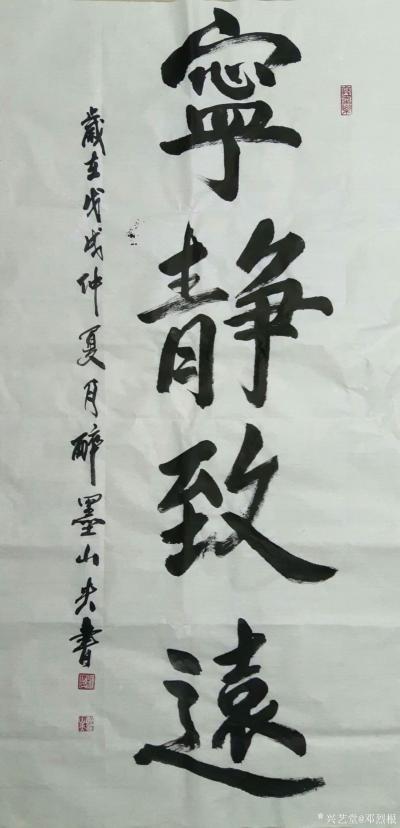 寧静致遠
歲在戊戌仲夏月醉墨山夫書
兴艺堂@邓烈根